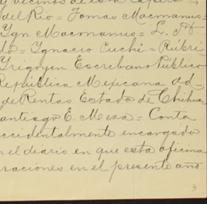 y vecinos de esta
del Rio = Tomas Macmanus =
Ign Macmanus = L.
= Ygnacio Cuchi = Rubri
Yrigoyen Escribano Publico
Republica Mexicana
de Rentas Estado de Chihua
antiago E. Meza = Conta
ccidentalmente encargado
n el diario en que esta oficina
raciones en el presente año